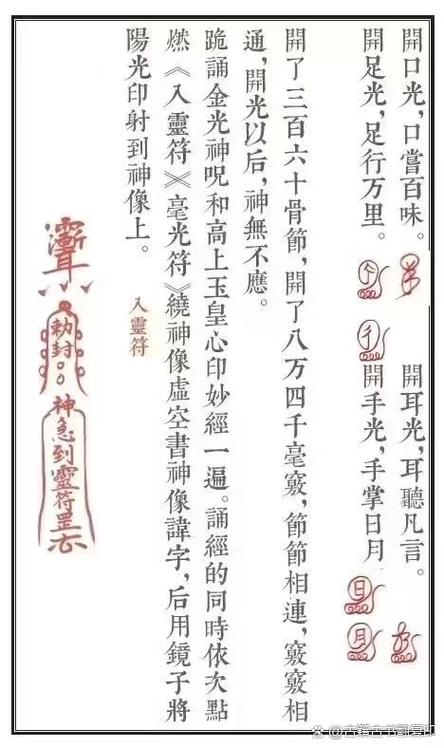 開口光，口嘗百味。
開耳光，耳聽凡言。
開足光，足行万里。
開手光，手掌日月
日
月
開了三百六十骨節，開了八万四千毫竅，節節相連，竅竅相
通，開光以后，神無不應。
跪誦金光神呪和高上玉皇心印妙經一遍。誦經的同時依次點
燃《入靈符》《毫光符》繞神像虛空書神像諱字，后用鏡子將
陽光印射到神像上。
入靈符
勅封
神急到靈符罡